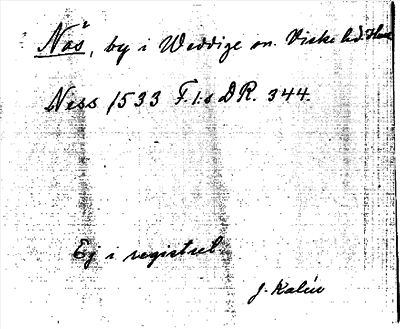 Näs, by i Weddige sn. Viske hd. Hall
Ness 1533 F.1:s DR. 344.
Ej i registret.
J. Kalén